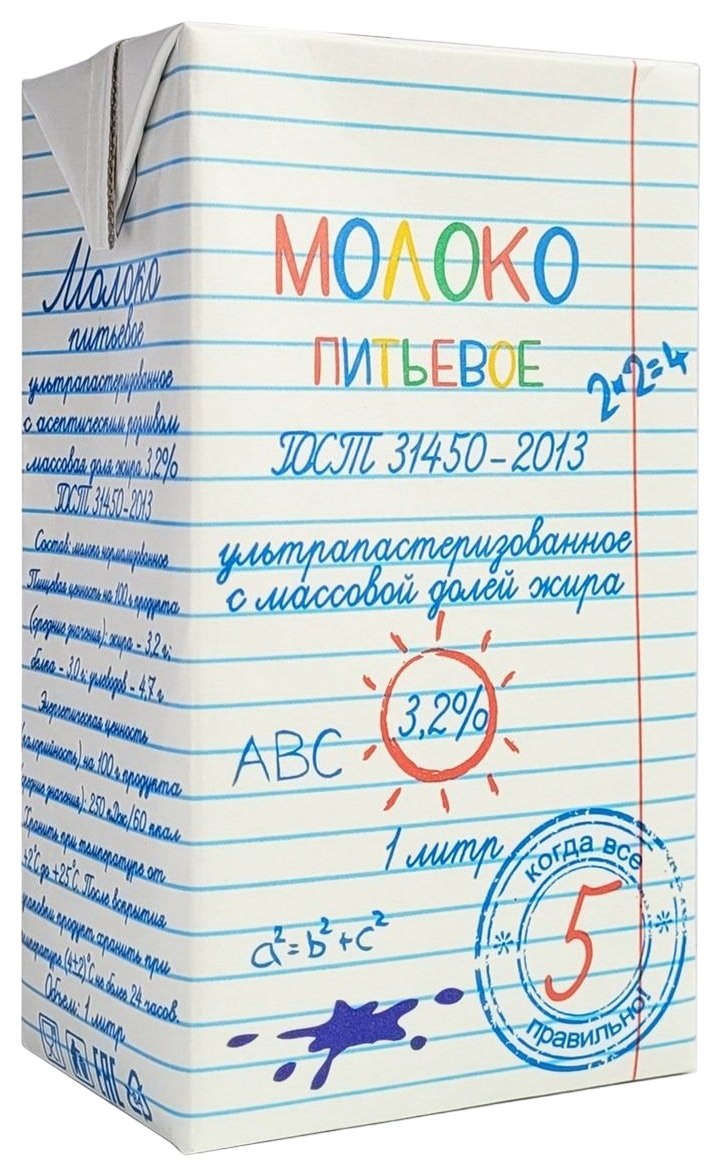 Молоко
питьевое
ультрапастеризованное
с асептическим розливом
массовая доля жира 3,2%
ГОСТ 31450-2013
Состав: молоко нормализованное
Пищевая ценность на 100 г продукта
(средние значения): жира - 3,2 г;
белка - 3,0 г; углеводов - 4,7 г
Энергетическая ценность
(калорийность) на 100 г продукта
(средние значения): 250 кДж/60 ккал
Хранить при температуре от
+2°С до +25°С. После вскрытия
упаковки продукт хранить при
температуре (4±2)°С не более 24 часов.
Объем: 1 литр
ЕАС
МОЛОКО
ПИТЬЕВОЕ
2×2=4
ГОСТ 31450-2013
ультрапастеризованное
с массовой долей жира
3,2%
ABC
1 литр
a²=b²+c²
когда все
5
правильно!